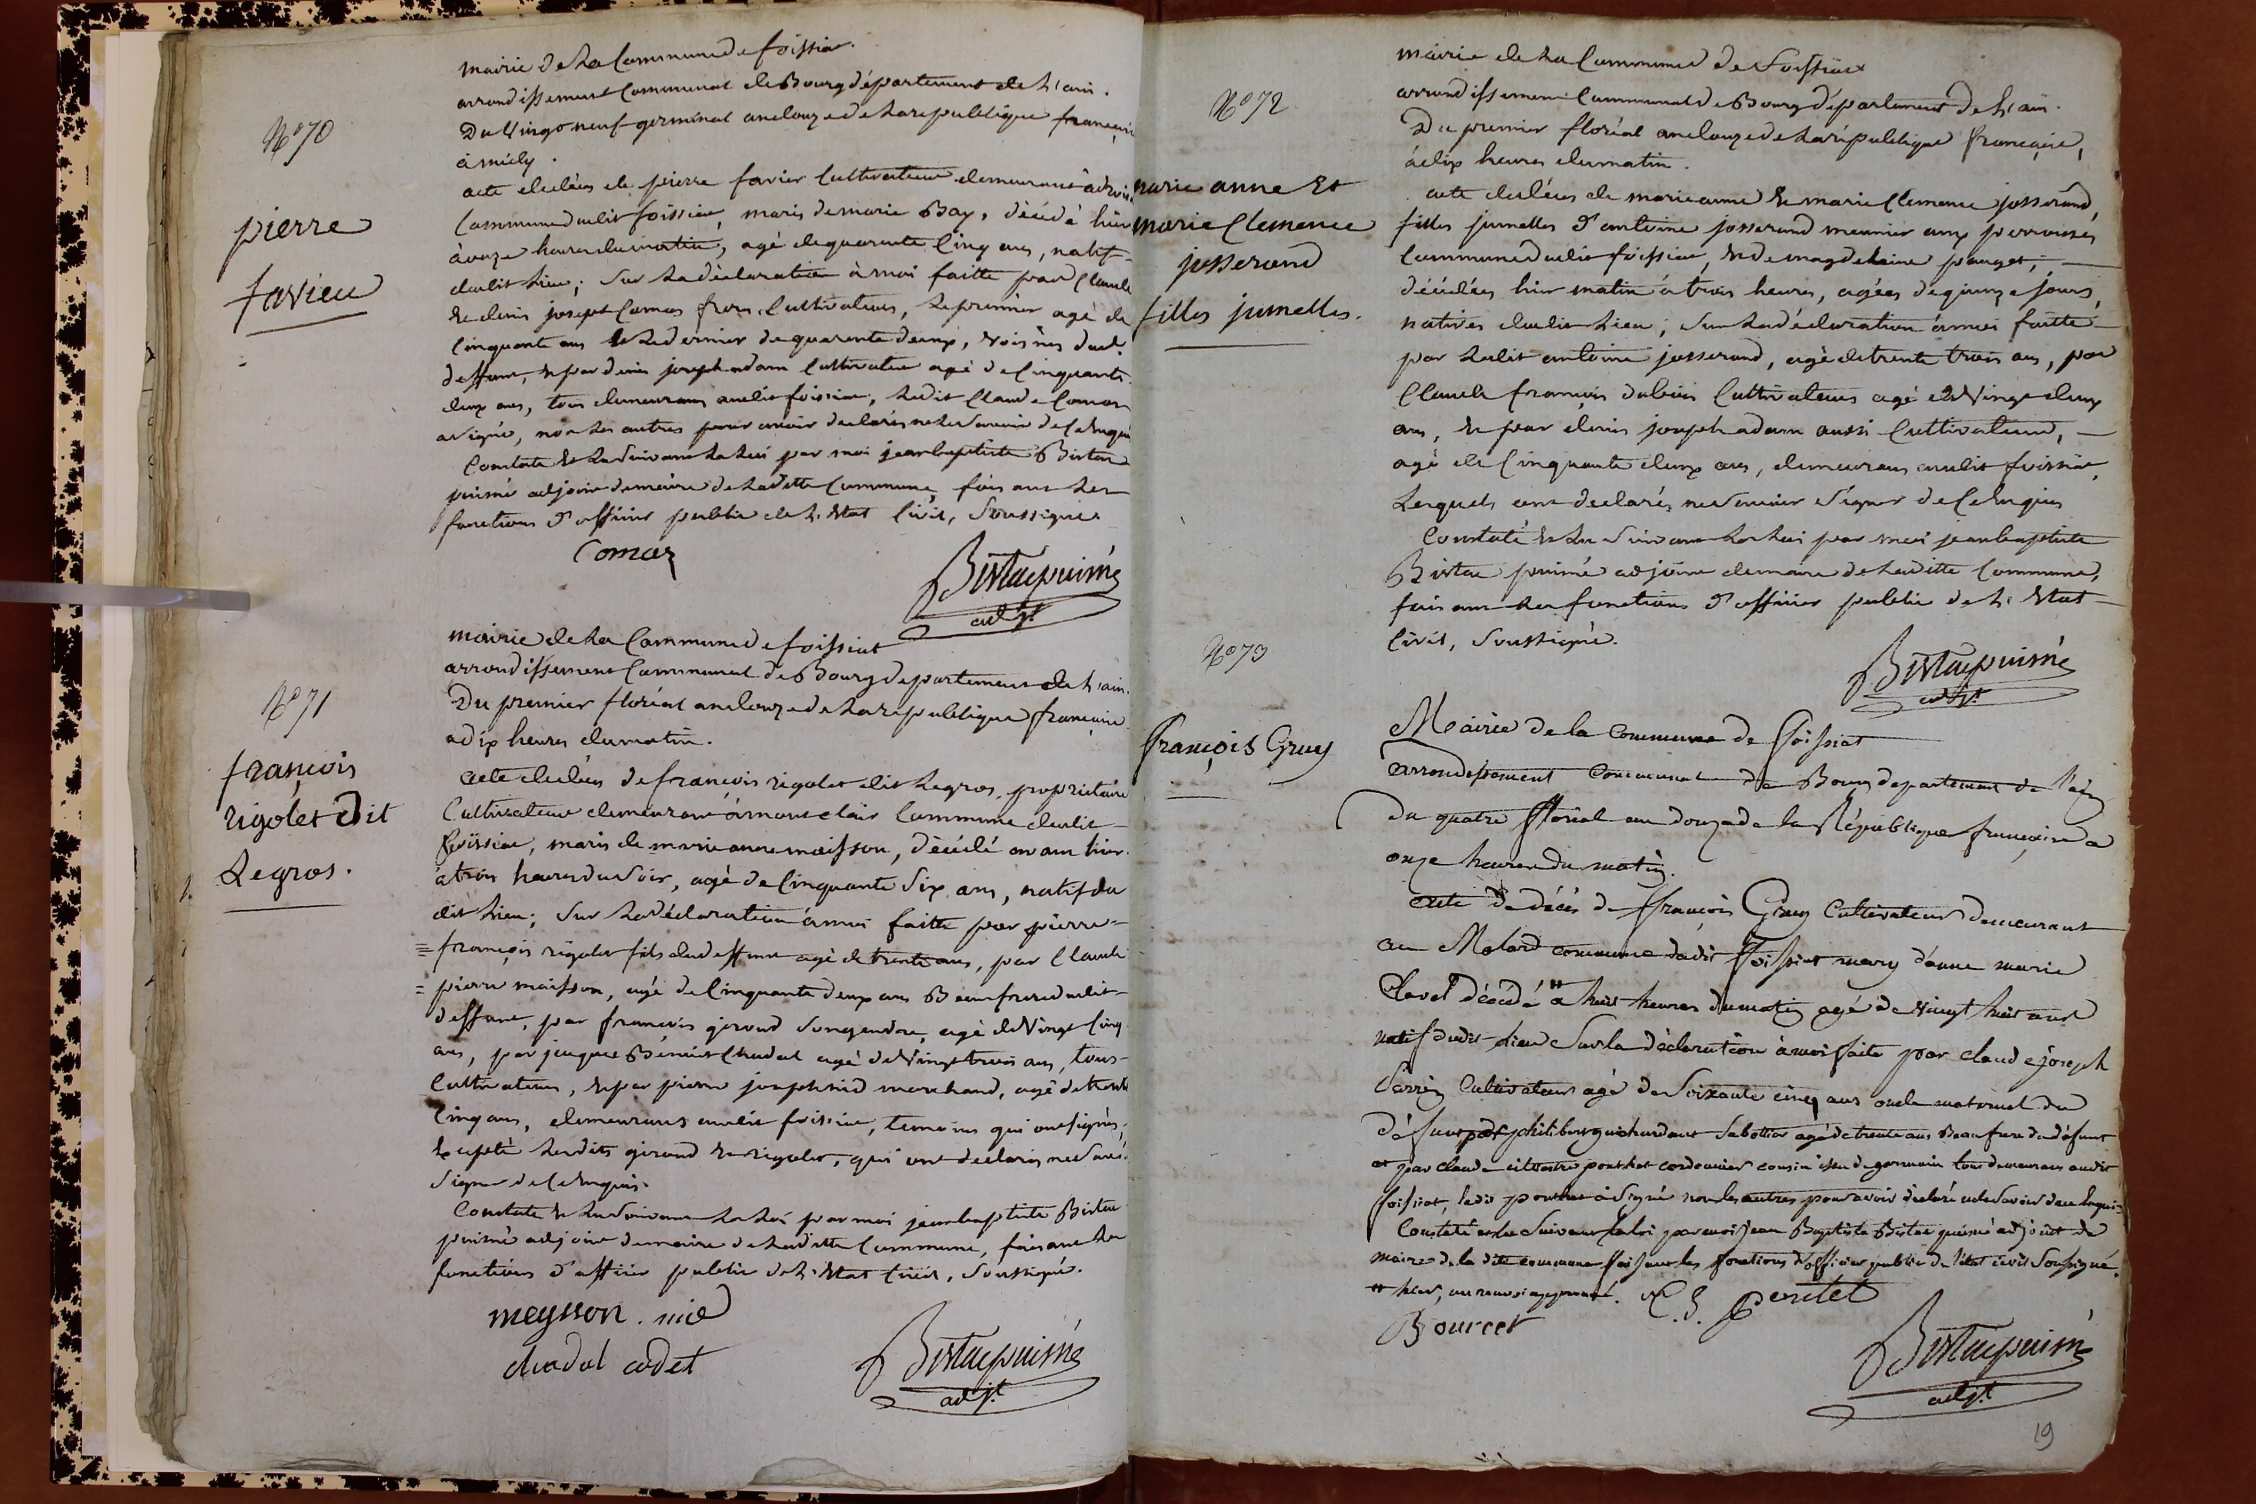 mairie de La Commune de foissiat.
arrondissement Communal de Bourg département de L'ain.
Du Vingt neuf germinal an douze de La republique française
à midy.
N.o 70
pierre
favier
acte de décès de pierre favier Cultivateur demeurant à
Commune dudit foissiat, maris de marie Bay, décédé hier
à onze heures du matin, agé de quarante Cinq ans, natif
dudit Lieu; Sur La déclaration à moi faitte par Claude
et denis joseph Comas frères, Cultivateurs, Le premier agé de
Cinquante ans et Le dernier de quarente deux, voisins dud.
deffunt, et par denis joseph adam Cultivateur agé de Cinquante
deux ans, tous demeurans audit foissiat, Ledit Claude Comas
a signé, non Les autres pour avoir declarés ne Le savoir de Ce Enquis
Constaté et Lu Suivant La Loi par moi jean baptiste Bistac
puisné adjoint du maire de Laditte Commune, faisant Les
fonctions d'officier public de L'Etat Civil, Soussigné.
Comas
Bistac puisné
adjt
mairie de La Commune de foissiat
arrondissement Communal de Bourg département de L'ain.
Du premier floréal an douze de La republique française
a dix heures du matin.
N.o 71
françois
rigolet dit
Legros.
acte de décès de françois rigolet dit Legros, propriétaire
Cultivateur demeurant à mont clair Commune dudit
foissiat, maris de marie anne maisson, décédé avant hier
à trois heures du Soir, agé de Cinquante Six ans, natif du
dit Lieu; Sur La déclaration à moi faitte par pierre
françois rigolet fils dud deffunt agé de trente ans, par Claude
pierre maisson, agé de Cinquante deux ans Beaufrere dudit
deffunt, par françois girond Son gendre, agé de Vingt Cinq
ans, par jacques Benoit Chadal agé de Vingt trois ans, tous
Cultivateurs, et par pierre joseph nid marchand, agé de trente
Cinq ans, demeurans audit foissiat, temoins qui ont signés,
Excepté Lesdits girond et rigolet, qui ont declarés ne Savoir
Signer de Ce Enquis.
Constaté et Lu Suivant La Loi par moi jean baptiste Bistac
puisné adjoint du maire de Laditte Commune, faisant Les
fonctions d'officier public de L'Etat Civil, Soussigné.
meysson. nid
chadal cadet
Bistac puisné
adjt.
mairie de La Commune de Foissiat
arrondissement Communal de Bourg département de L'ain.
Du premier floréal an douze de La république française,
à dix heures du matin.
N.o 72
marie anne Et
marie Clemence
josserand
filles jumelles.
acte de décès de marie anne et marie Clemence josserand,
filles jumelles d'antoine josserand meunier aux
Commune dudit foissiat, et de magdelaine pauget,
décédées hier matin à trois heures, agées de quinze jours,
natives dudit Lieu; Sur La déclaration à moi faitte
par Ledit antoine josserand, agé de trente trois ans, par
Claude françois dubois Cultivateur agé de Vingt deux
ans, et par denis joseph adam aussi Cultivateur,
agé de Cinquante deux ans, demeurans audit foissiat,
Lesquels ont declarés ne Savoir Signer de Ce Enquis
Constaté et Lu Suivant La Loi par moi jean baptiste
Bistac puisné adjoint du maire de Laditte Commune,
faisant Les fonctions d'officier public de L'Etat
Civil, Soussigné.
Bistac puisné
adjt.
N.o 73
françois Gruy
Mairie de la Commune de Foissiat
arrondissement Communal de Bourg departement de l'ain
du quatre floréal an douze de la République française a
onze heures du matin.
acte de décès de François Gruy Cultivateur demeurant
au Molard commune dudit Foissiat mary d'anne marie
Clavel décédé " à huit heures du matin agé de vingt huit ans
natif dudit lieu Sur la déclaration à moi faite par claude joseph
Cultivateur agé de Soixante cinq ans oncle maternel du
défunt par philibert guichardant Sabottier agé de trente ans Beaufrere du défunt
et par claude silvestre ponthet cordonnier cousin issu de germain tous demeurans audit
foissiat, ledit ponthet à Signé non les autres pour avoir déclaré ne le Savoir de ce Enquis
Constaté et lu Suivant la loi par moi jean Baptiste Bistac puisné adjoint du
maire de la dite commune faisant les fonctions d'officier public de l'état civil Soussigné.
" hier, au renvoi approuvé. C. S. pontet
Bourcet
Bistac puisné
adjt
19